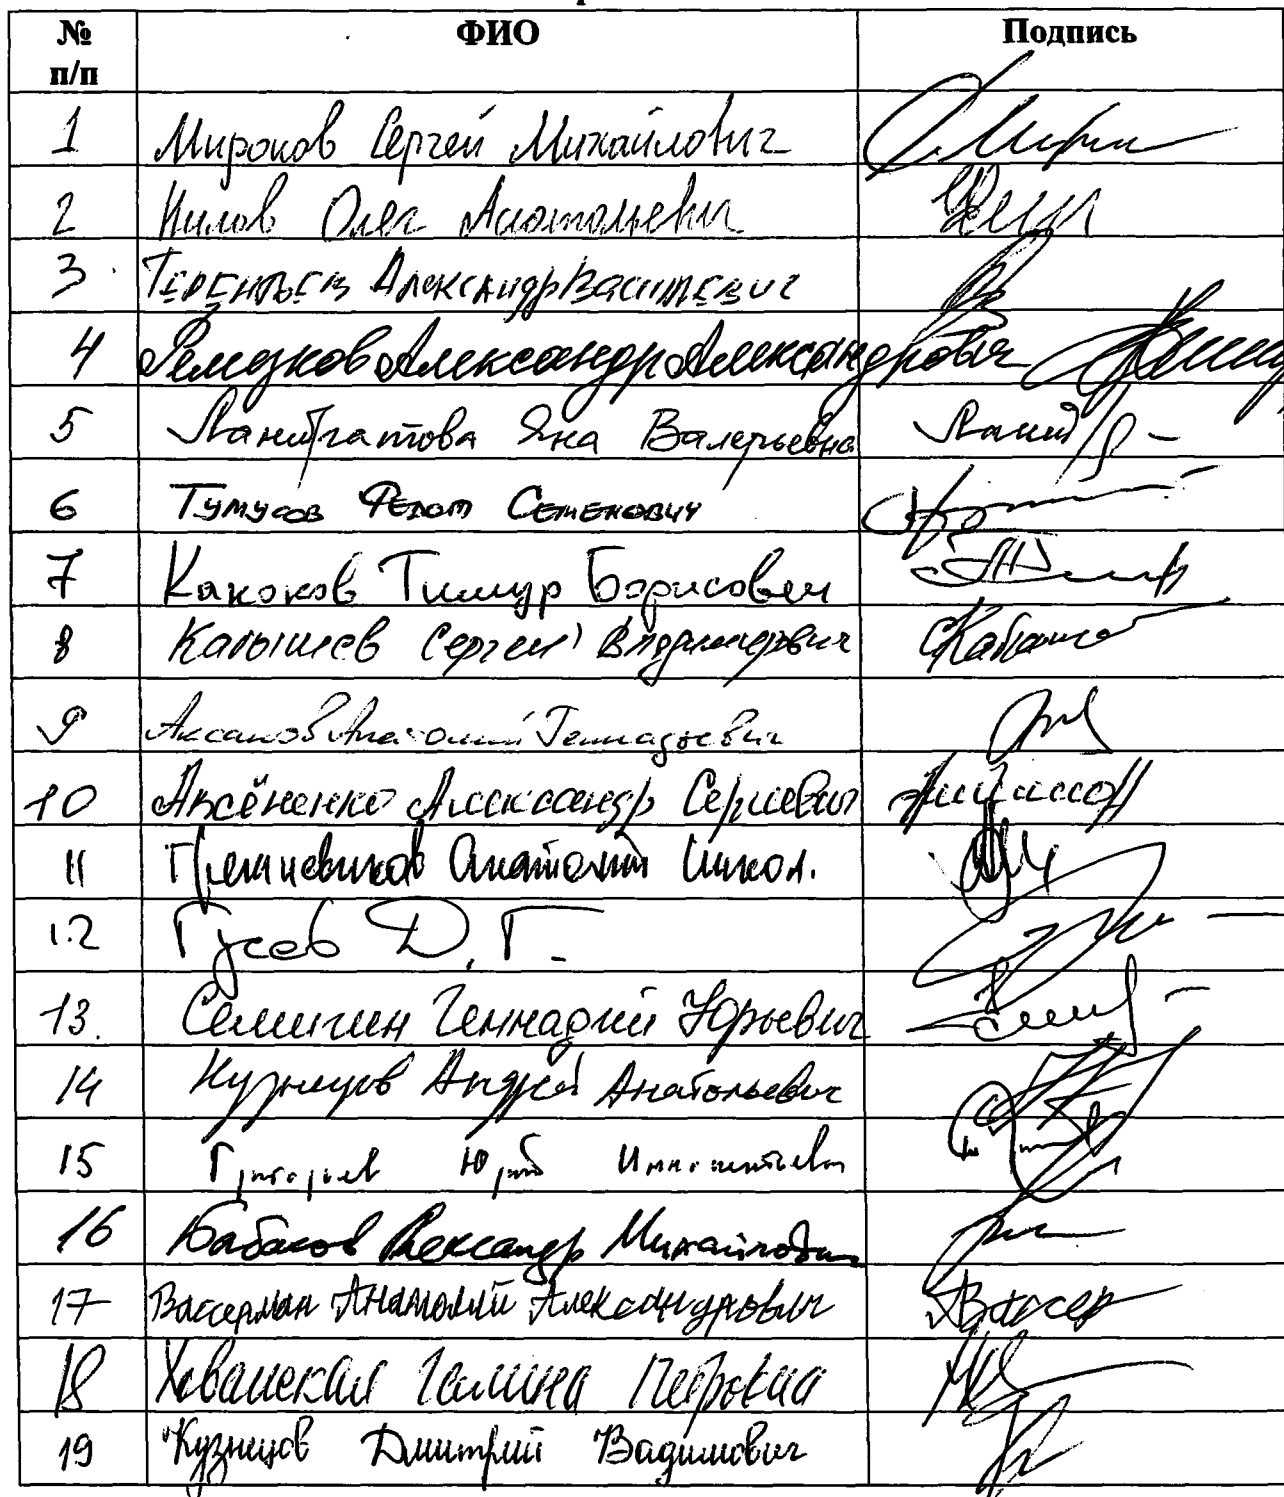 № п/п ФИО Подпись
1 Миронов Сергей Михайлович
2 Нилов Олег Анатольевич
3 Терентьев Александр Васильевич
4 Ремезков Александр Александрович
5 Лантратова Яна Валерьевна
6 Тумусов Федот Семенович
7 Каноков Тимур Борисович
8 Кабышев Сергей Владимирович
9 Аксаков Анатолий Геннадьевич
10 Аксёненко Александр Сергеевич
11 Грешневиков Анатолий Никол.
12 Гусев Д.Г.
13. Семигин Геннадий Юрьевич
14 Кузнецов Андрей Анатольевич
15 Григорьев Юрий Иннокентьевич
16 Бабаков Александр Михайлович
17 Вассерман Анатолий Александрович
18 Хованская Галина Петровна
19 Кузнецов Дмитрий Вадимович